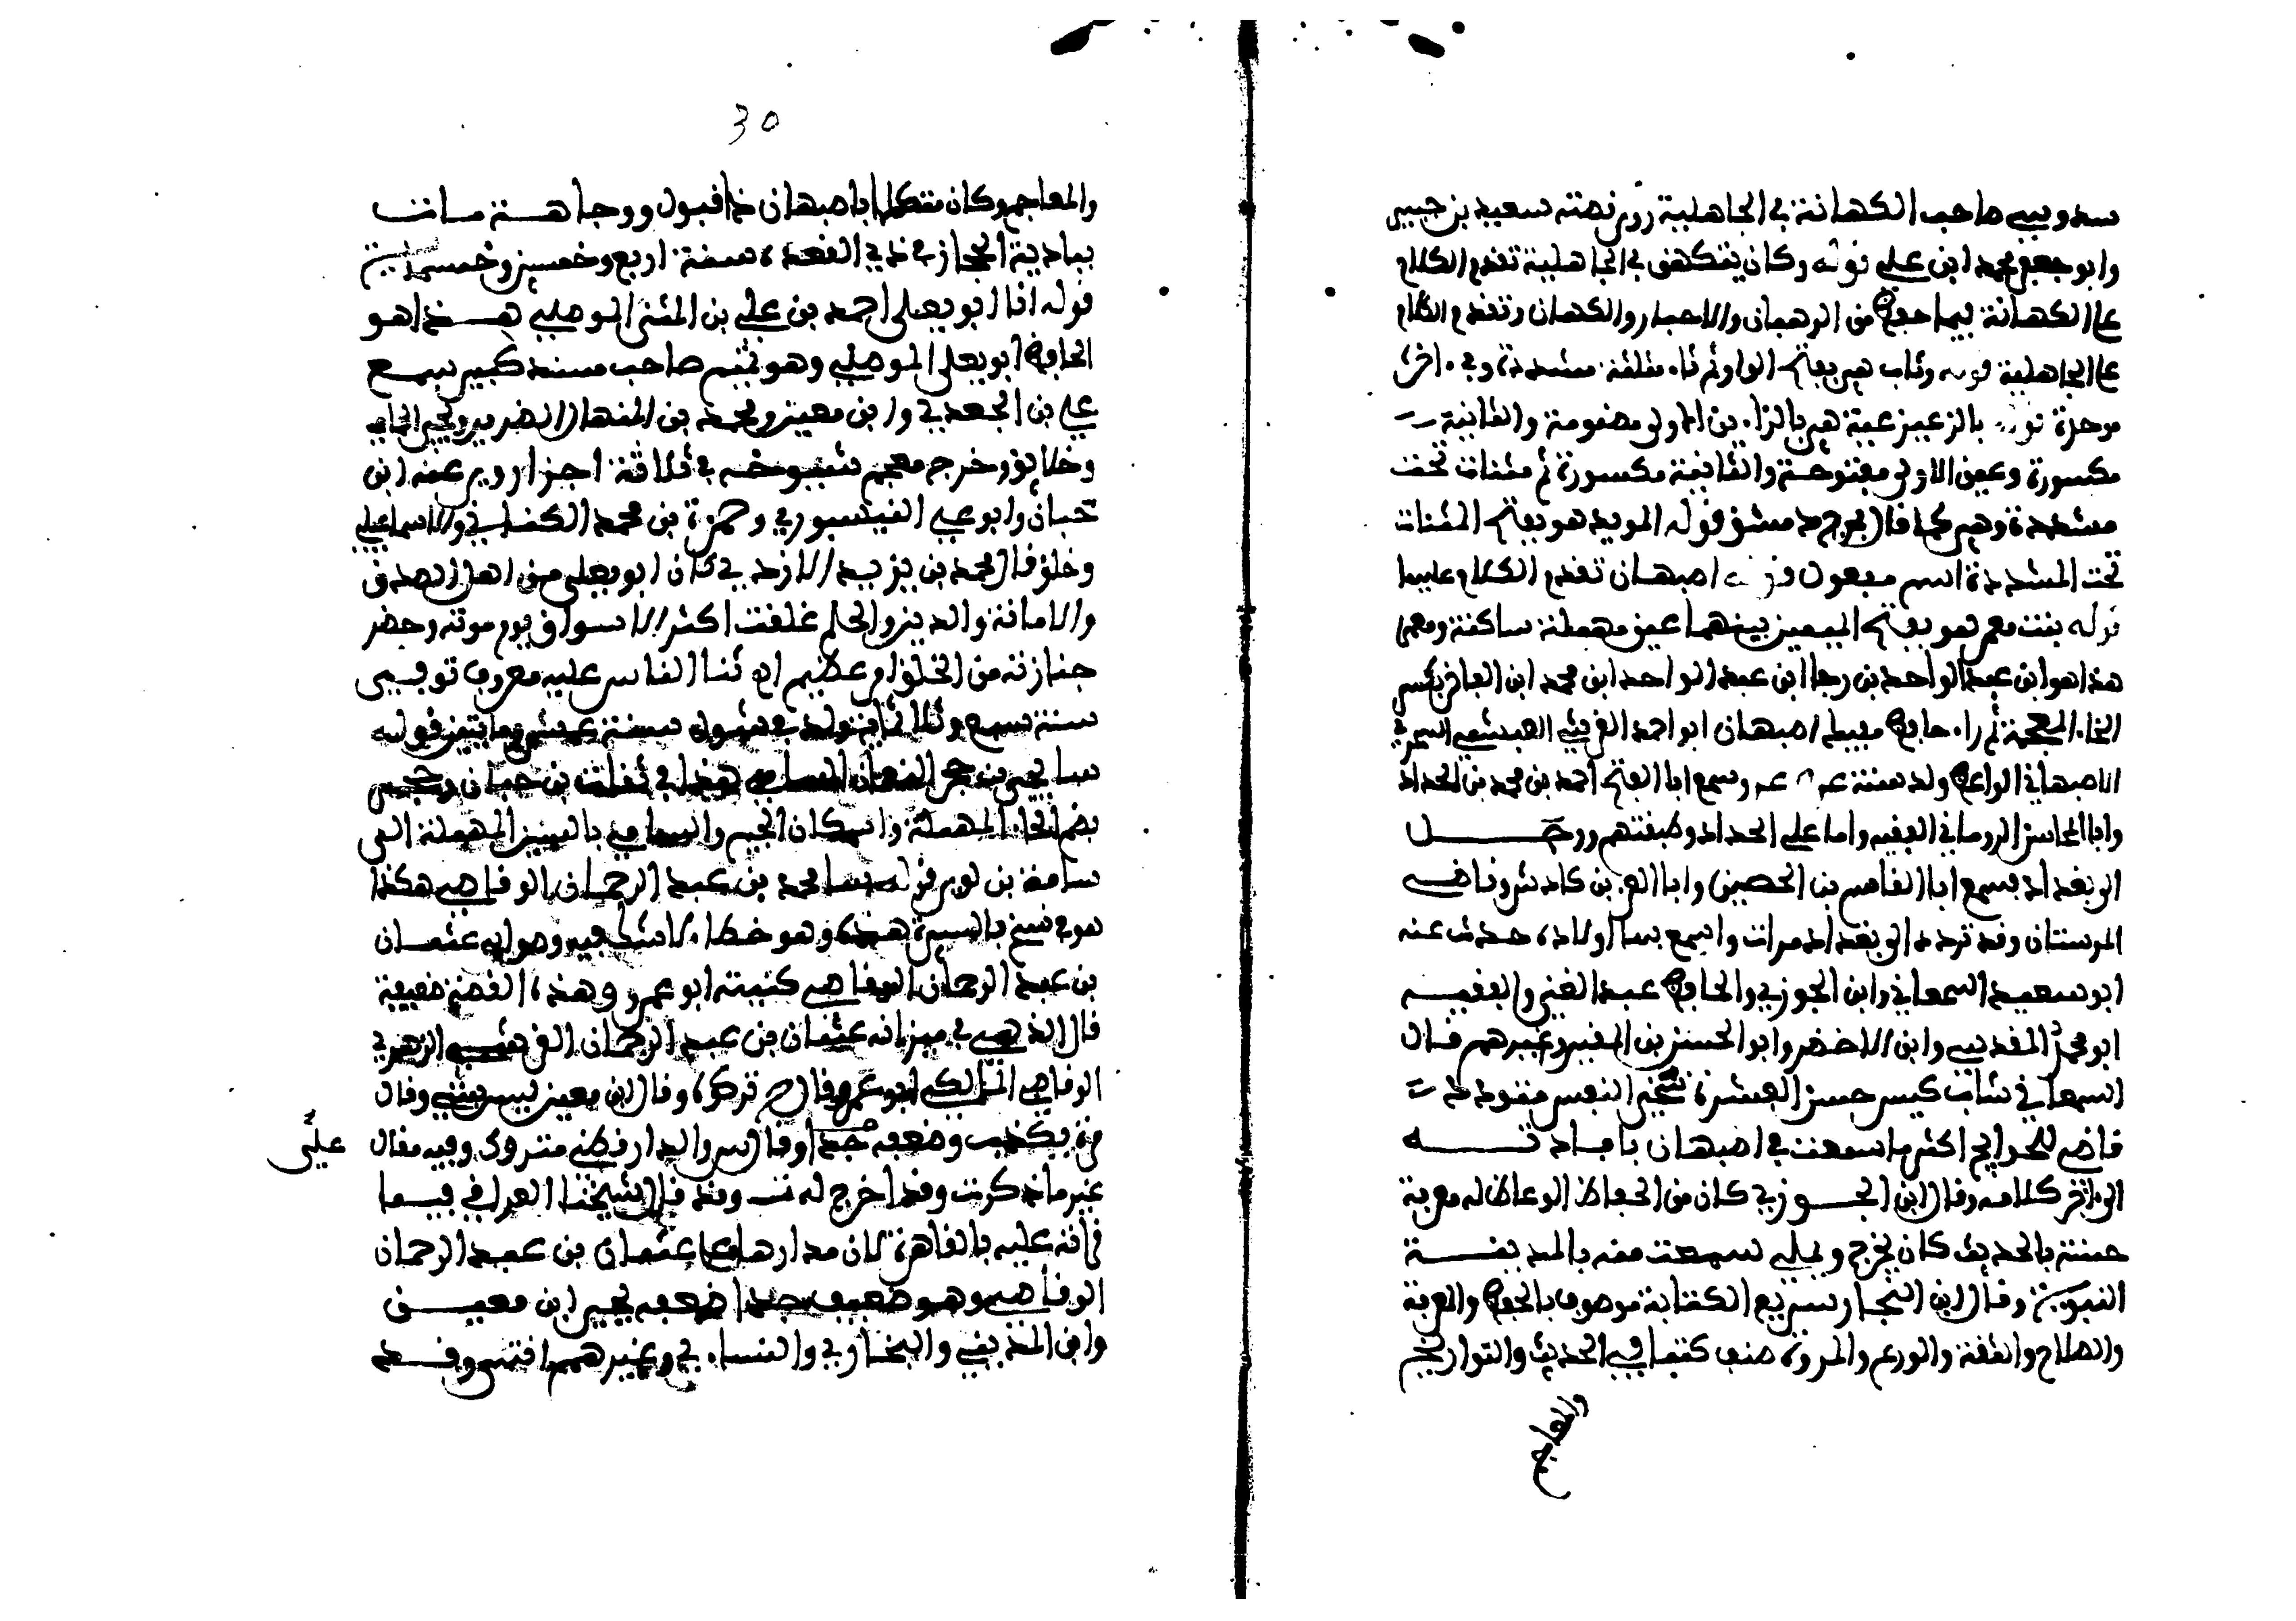 سدوسي صاحب الكهانة في الجاهلية روى قصته سعيد بن جبير
وابو جعفر محمد ابن علي قوله وكان يتكهن في الجاهلية تقدم الكلام
على الكهانة فيما حفظ من الرهبان والاحبار والكهان وتقدم الكلام
على الجاهلية قوله وثاب هو بفتح الواو ثم ثاء مثلثة مشددة وفي اخره
موحدة قوله بالزعيزعية هي بالزاءين الاولى مضمومة والثانية
مكسورة وعين الاولى مفتوحة والثانية مكسورة ثم مثنات تحت
مشددة وهي كما قال بمرج دمشق قوله المويد هو بفتح المثنات
تحت المشددة اسم مفعول قوله اصبهان تقدم الكلام عليها
قوله بنت معمر هو بفتح الميمين بينهما عين مهملة ساكنة ومعمر
هذا هو ابن عبد الواحد بن رجا ابن عبد الواحد ابن محمد ابن الفاخر بكسر
الخاء المعجمة ثم راء حافظ مفيد اصبهان ابو احمد القرشي العبشمي السمري
الاصبهاني الواعظ ولد سنة وسمع ابا الفتح احمد بن محمد بن الحداد
وابا المحاسن الروماني الفقيه واما علي الحداد وطبقتهم ورحل
الى بغداد فسمع ابا القاسم بن الحصين وابا العز بن كادش وقاضي
المرستان وقد تردد الى بغداد مرات واسمع بها اولاده حدث عنه
ابو سعيد السمعاني وابن الجوزي والحافظ عبد الغني والفقيه
ابو محمد المقدسي وابن الاخضر وابو الحسن بن المقير وغيرهم قال
السمعاني شاب كيس حسن العشرة سخي النفس متودد
قاضي للحوايج اكثر ما سمعت في اصبهان بافادته
الى اخر كلامه وقال ابن الجوزي كان من الحفاظ الوعاظ له معرفة
حسنة بالحديث كان يخرج ويملي سمعت منه بالمدينة
النبوية وقال ابن النجار سريع الكتابة موصوف بالحفظ والمعرفة
والصلاح والثقة والورع والمروة صنف كتبا في الحديث والتواريخ
والمعاجم
30
والمعاجم وكان متكلما باصبهان ذا قبول ووجاهة مات
ببادية الحجاز في ذي القعدة سنة اربع وخمسين وخمسماية
قوله انا ابو يعلى احمد بن علي بن المثنى الموصلي هذا هو
الحافظ ابو يعلى الموصلي وهو صاحب مسند كبير سمع
علي بن الجعد وابن معين ومحمد بن المنهال الضرير ويحيى الحماني
وخلايق وخرج معجم شيوخه في ثلاثة اجزا روى عنه ابن
حبان وابو علي النيسبوري وحمزة بن محمد الكناني والاسماعيلي
وخلق قال محمد بن يزيد الازدي كان ابو يعلى من اهل الصدق
والامانة والدين والحلم غلقت اكثر الاسواق يوم موته وحضر
جنازته من الخلق امر عظيم اثنا الناس عليه معروف توفي
سنة سبع وثلاثماية ولد في شوال سنة عشر ومايتين قوله
سا يحيى بن حجر النعمان السامي هذا في ثقات بن حبان وحجر
بضم الحاء المهملة واسكان الجيم والسامي بالسين المهملة الى
سامة بن لوي قوله سا محمد بن عبد الرحمان الوقاصي هكذا
هو في نسخ بالسيرة هذه وهو خطا لا شك فيه وهو ابو عثمان
بن عبد الرحمان الوقاصي كنيته ابو عمرو وهذه القصة ضعيفة
قال الذهبي في ميزانه عثمان بن عبد الرحمان القرشي الزهري
الوقاصي المالكي ابو عمرو قال خ تركوه وقال ابن معين ليس بشي وقال
مرة يكذب وضعفه جدا وقال س والدارقطني متروك وفيه مقال
على
غير ما ذكرت وقد اخرج له ت وقد قال شيخنا العراقي فيما
قراته عليه بالقاهرة كان مدارها على عثمان بن عبد الرحمان
الوقاصي وهو ضعيف جدا ضعفه يحيى ابن معين
وابن المديني والبخاري والنساءي وغيرهم انتهى وقد